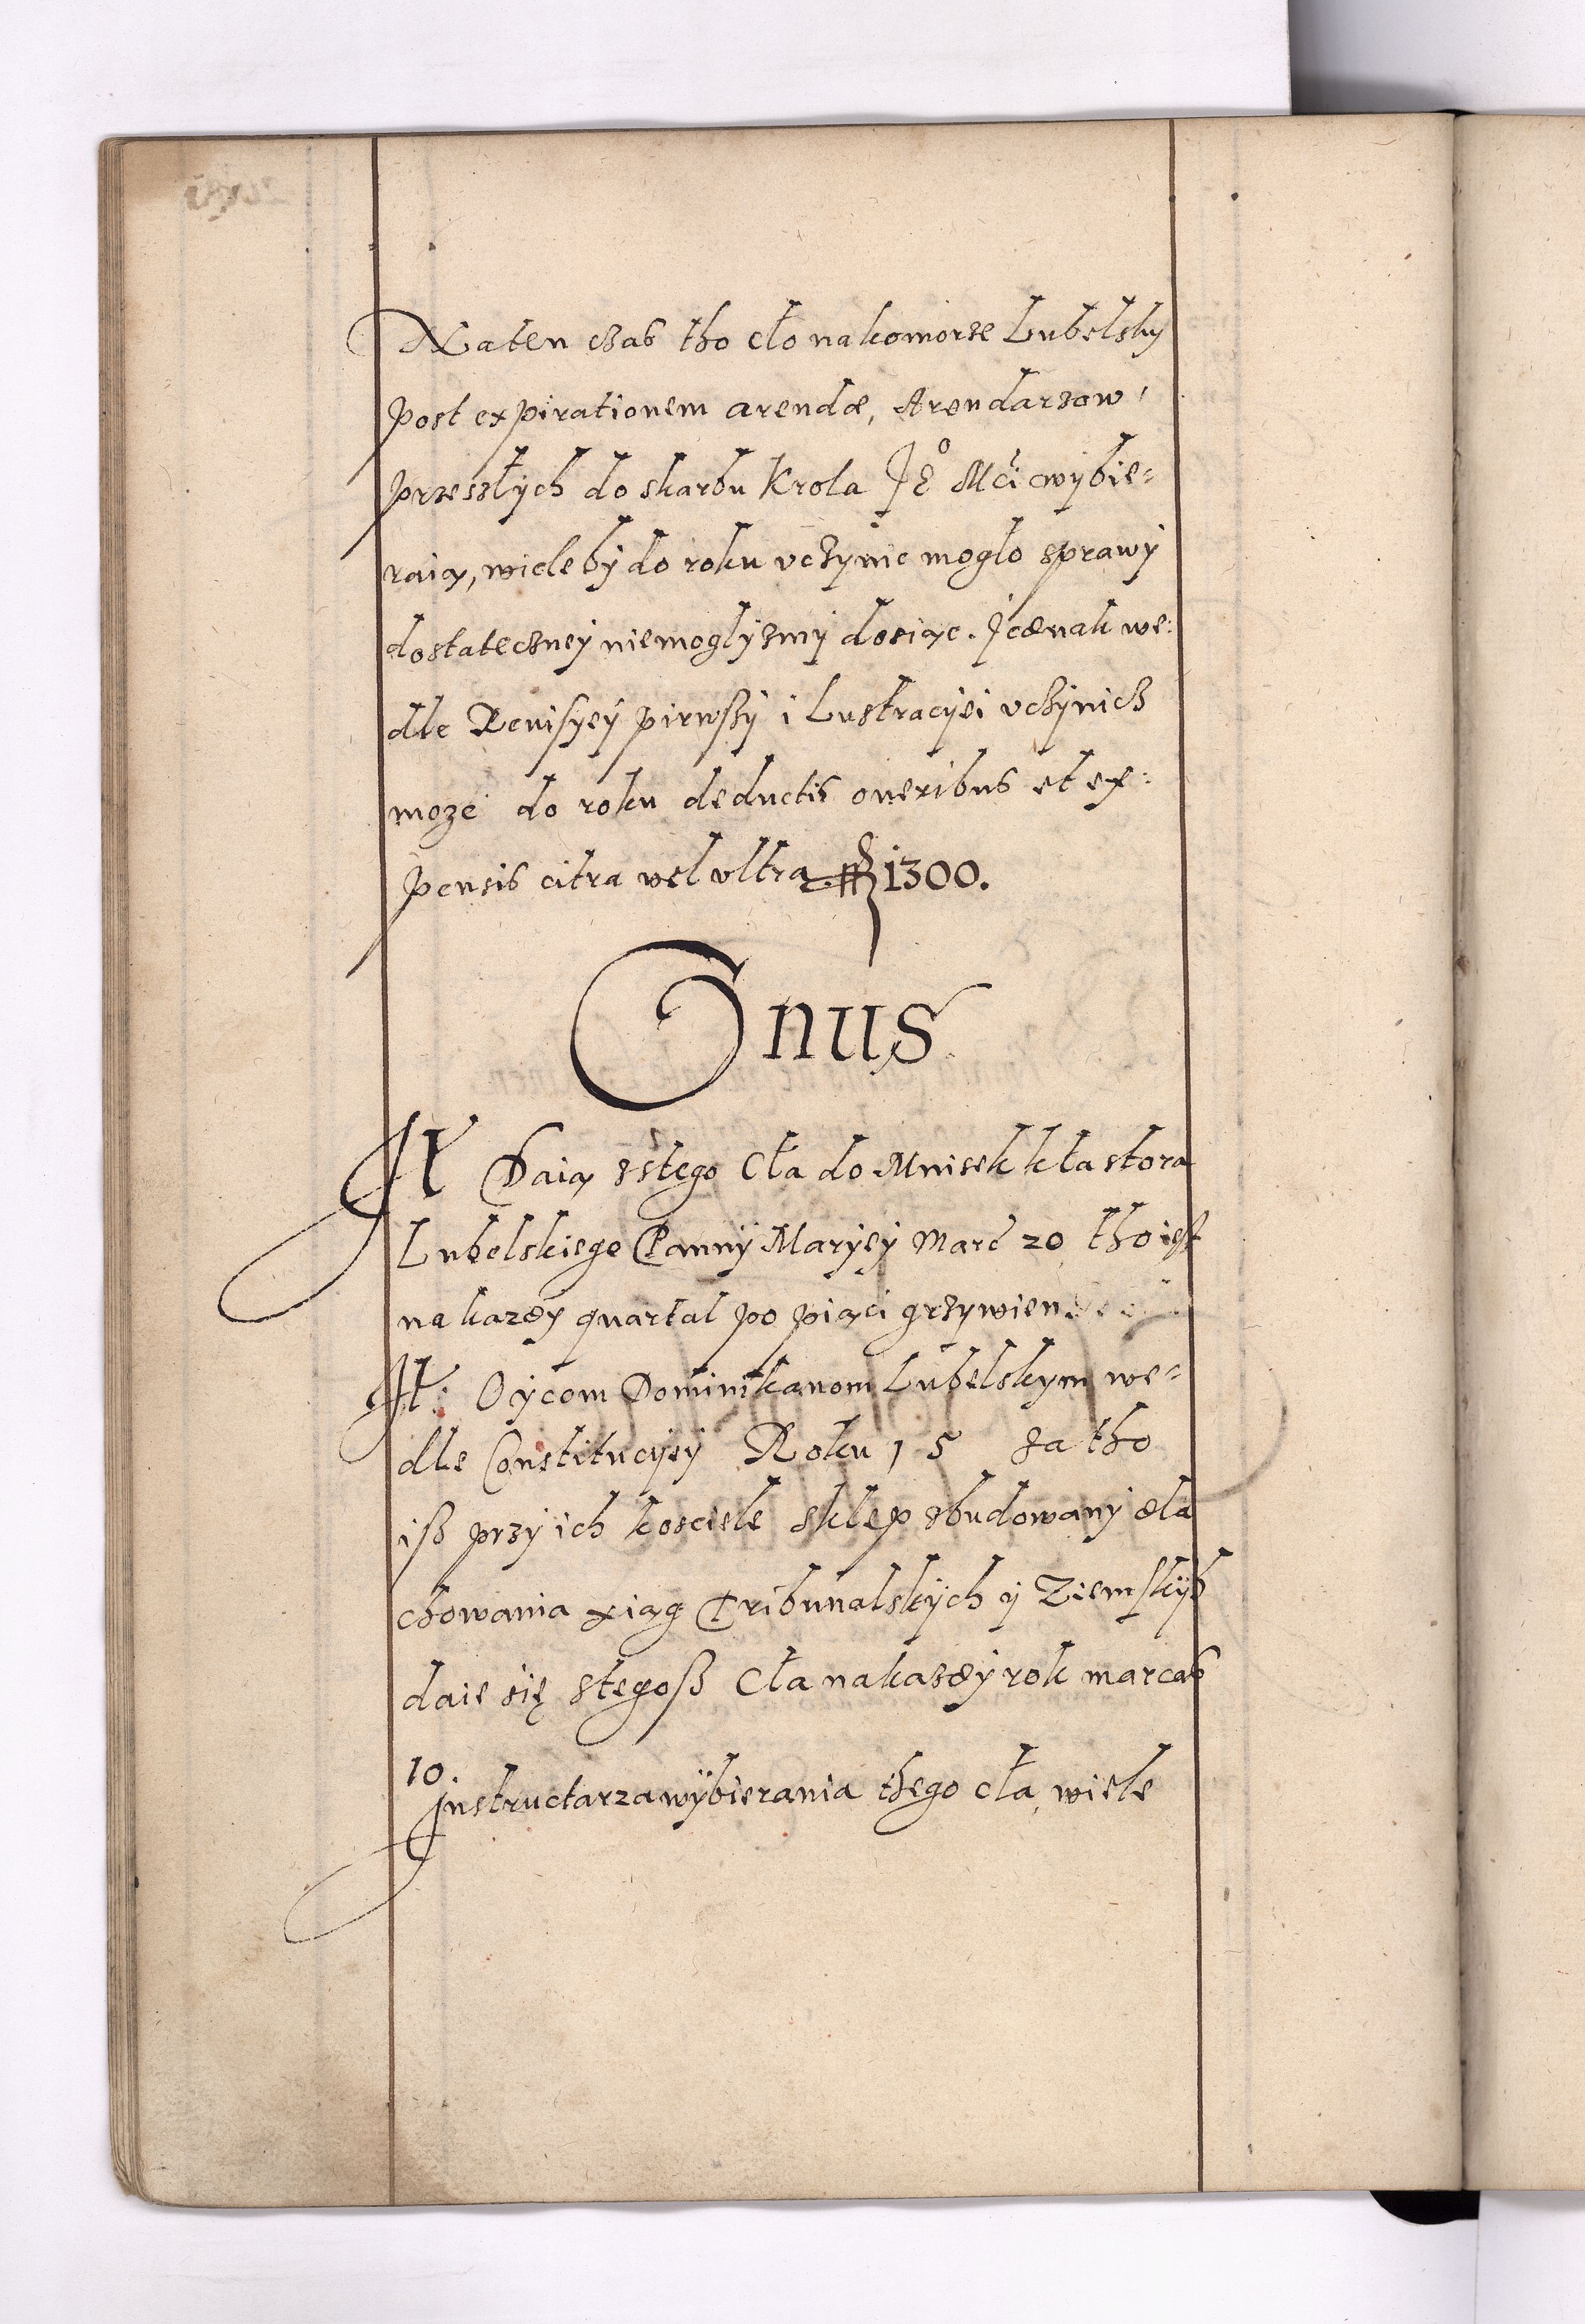 Naten czas tho cło nakomorze Lubelsky
post expirationem arendæ, Arendarzow
przeszłych do skarbu Krola Jeº Mći wybie=
raią, wieleby do roku vczynic mogło sprawy
dostateczney niemoglyzmy dosiąc. Jednak we:
dle Revisyey pirwßy i Lustracyei vczynicz
moze do roku deductis oneribus et ex:
pensis citra vel vltra 1300.
Onus
It Daią zstego Cła do Mnisek klastora
Lubelskiego Panny Maryey Marc 20 tho iest
na kazdy quartal po piąci grzywien
It: Oycom Dominikanom Lubelskym we=
dle Constitucyey Roku 15 za tho
iß przy ich kosciele sklep zbudowany dla
chowania xiąg Tribunalskych y Ziemskych
daie się stegoß Cła nakazdy rok marcas
10.
Jnstructarza wybierania thego cła, wiele